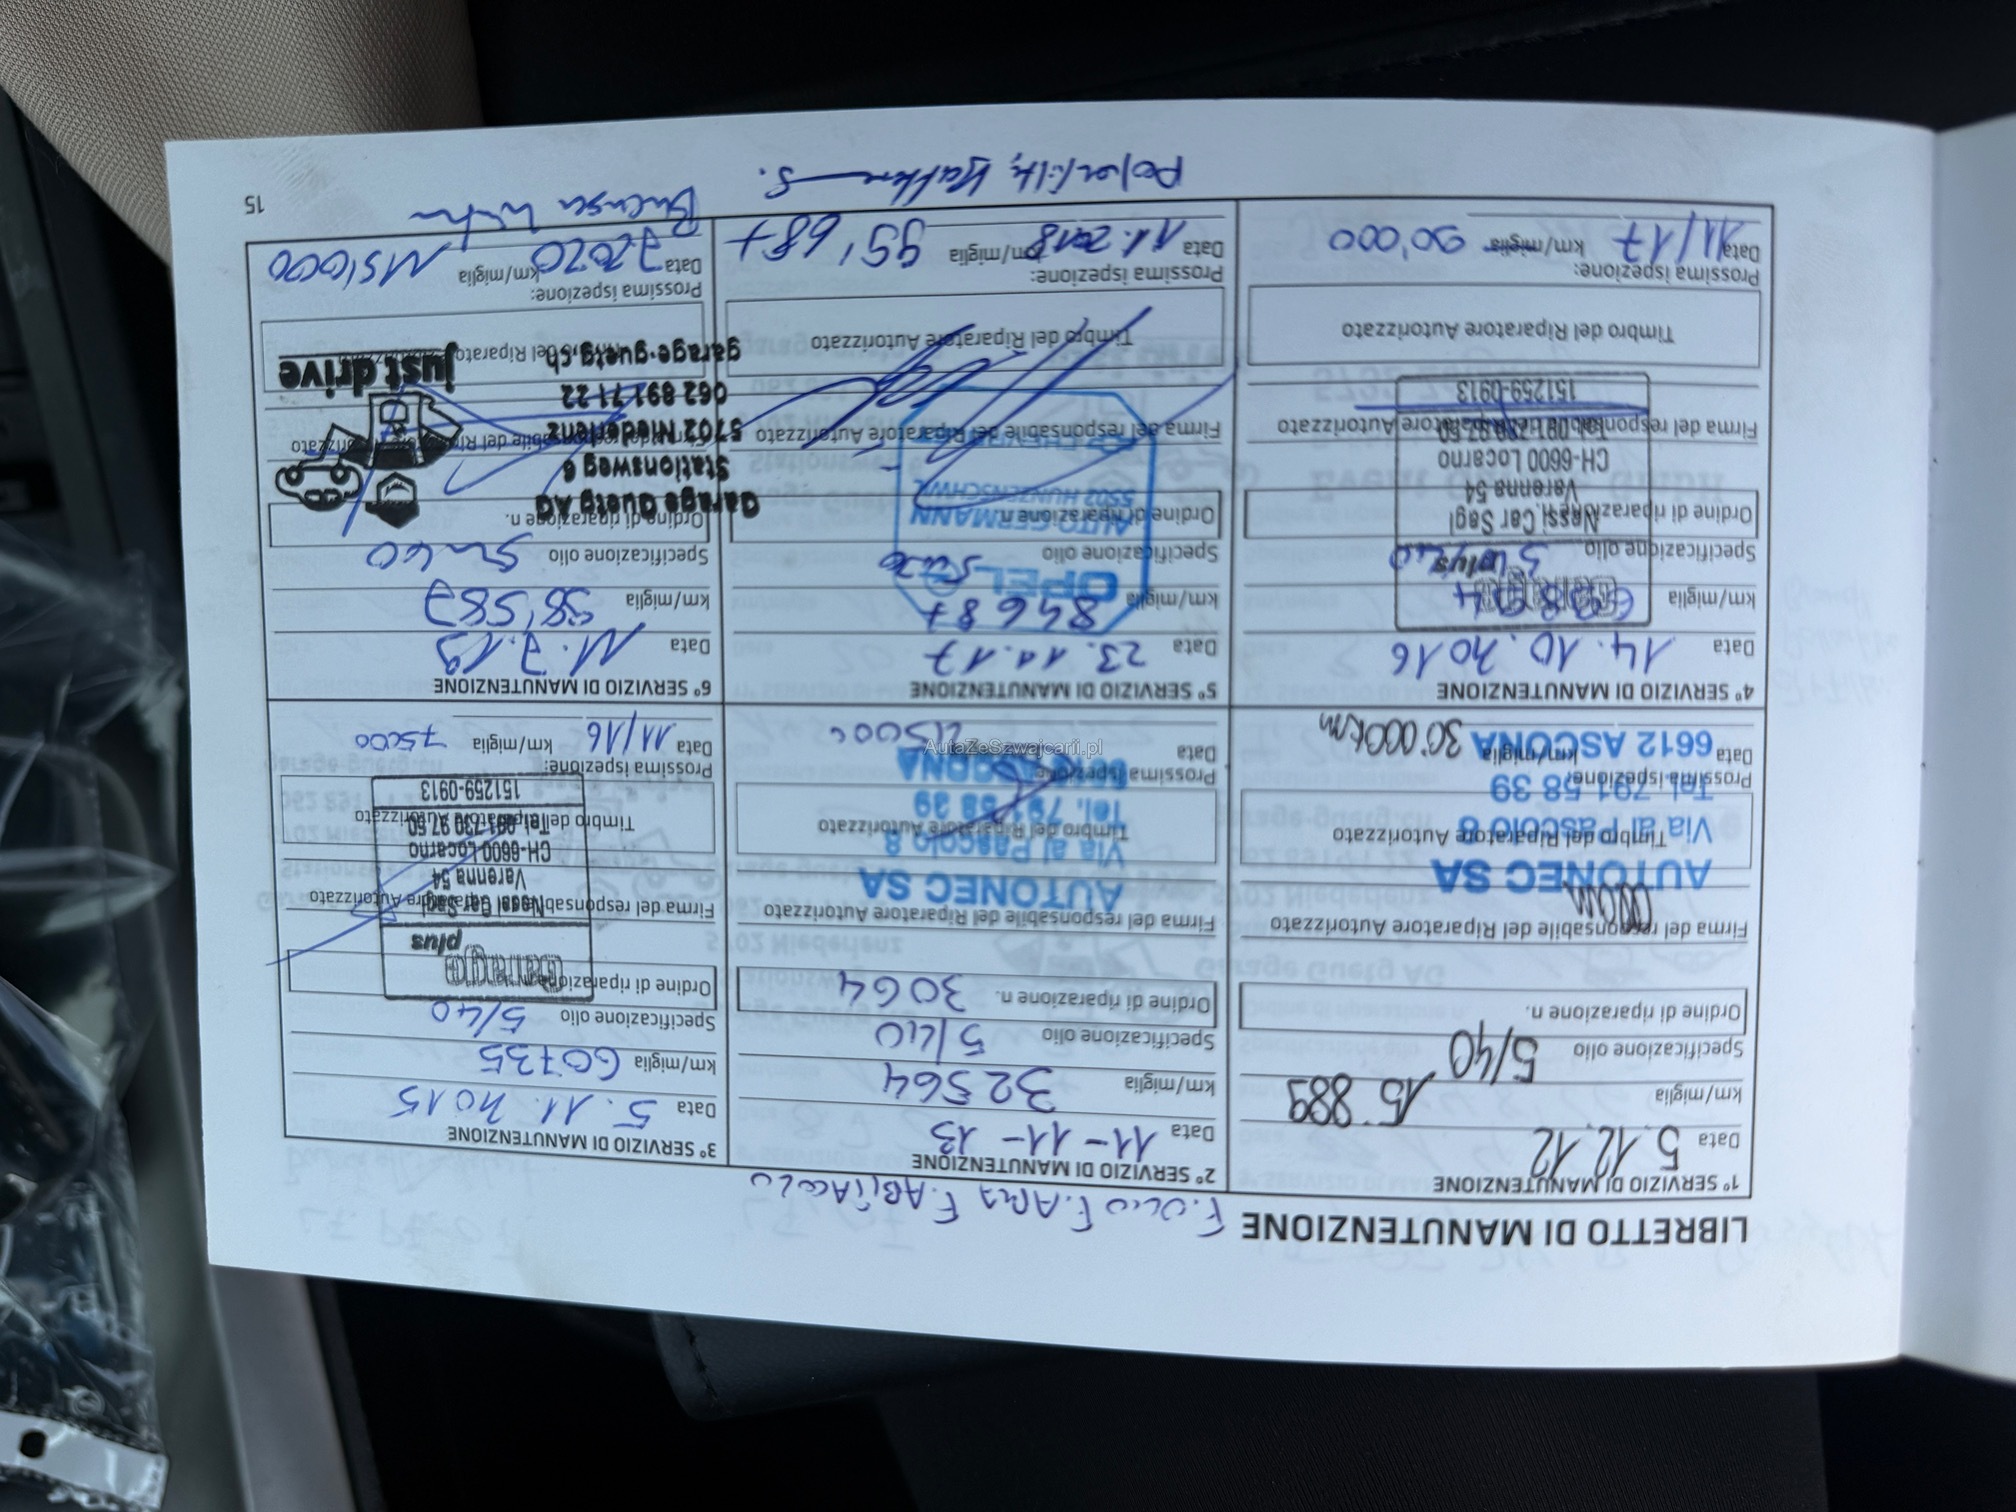 LIBRETTO DI MANUTENZIONE
F. OLIO F. ARIA F. ABITACOLO
1° SERVIZIO DI MANUTENZIONE
Data 5.12.12
km/miglia 15'889
Specificazione olio 5/40
Ordine di riparazione n.
Firma del responsabile del Riparatore Autorizzato
AUTONEC SA
Timbro del Riparatore Autorizzato
Via al Pascolo 8
Prossima ispezione:
Tel. 791 58 39
Data km/miglia 30'000km
6612 ASCONA
2° SERVIZIO DI MANUTENZIONE
Data 11-11-13
km/miglia 32564
Specificazione olio 5/40
Ordine di riparazione n. 3064
Firma del responsabile del Riparatore Autorizzato
AUTONEC SA
Via al Pascolo 8
Timbro del Riparatore Autorizzato
Tel. 791 58 39
Prossima ispezione:
ASCONA
Data
3° SERVIZIO DI MANUTENZIONE
Data 5.11.2015
km/miglia 60735
Specificazione olio 5/40
Ordine di riparazione n.
Garage plus
Firma del responsabile del Riparatore Autorizzato
Nessi Car Sagl
Varenna 54
CH-6600 Locarno
Timbro del Riparatore Autorizzato
Tel. 091 730 97 60
151259-0913
Prossima ispezione:
Data 11/16 km/miglia 75000
4° SERVIZIO DI MANUTENZIONE
Data 14.10.2016
km/miglia
Garage plus
Specificazione olio
Ordine di riparazione n.
Nessi Car Sagl
Varenna 54
CH-6600 Locarno
Firma del responsabile del Riparatore Autorizzato
151259-0913
Timbro del Riparatore Autorizzato
Prossima ispezione:
Data 11/17 km/miglia 90'000
5° SERVIZIO DI MANUTENZIONE
Data 23.11.17
km/miglia 84687
OPEL
Specificazione olio
Ordine di riparazione n.
AUTO GERMANN
5502 HUNZENSCHWIL
Firma del responsabile del Riparatore Autorizzato
Timbro del Riparatore Autorizzato
Prossima ispezione:
Data 11.2018 km/miglia 99'687
6° SERVIZIO DI MANUTENZIONE
Data 11.7.19
km/miglia 98'587
Specificazione olio 5W40
Ordine di riparazione n.
Garage Guetg AG
Stationsweg 6
Firma del responsabile del Riparatore Autorizzato
5702 Niederlenz
062 891 71 22
Timbro del Riparatore Autorizzato
garage-guetg.ch
just drive
Prossima ispezione:
Data 7.2020 km/miglia 115'000
15
AutaZeSzwajcarii.pl